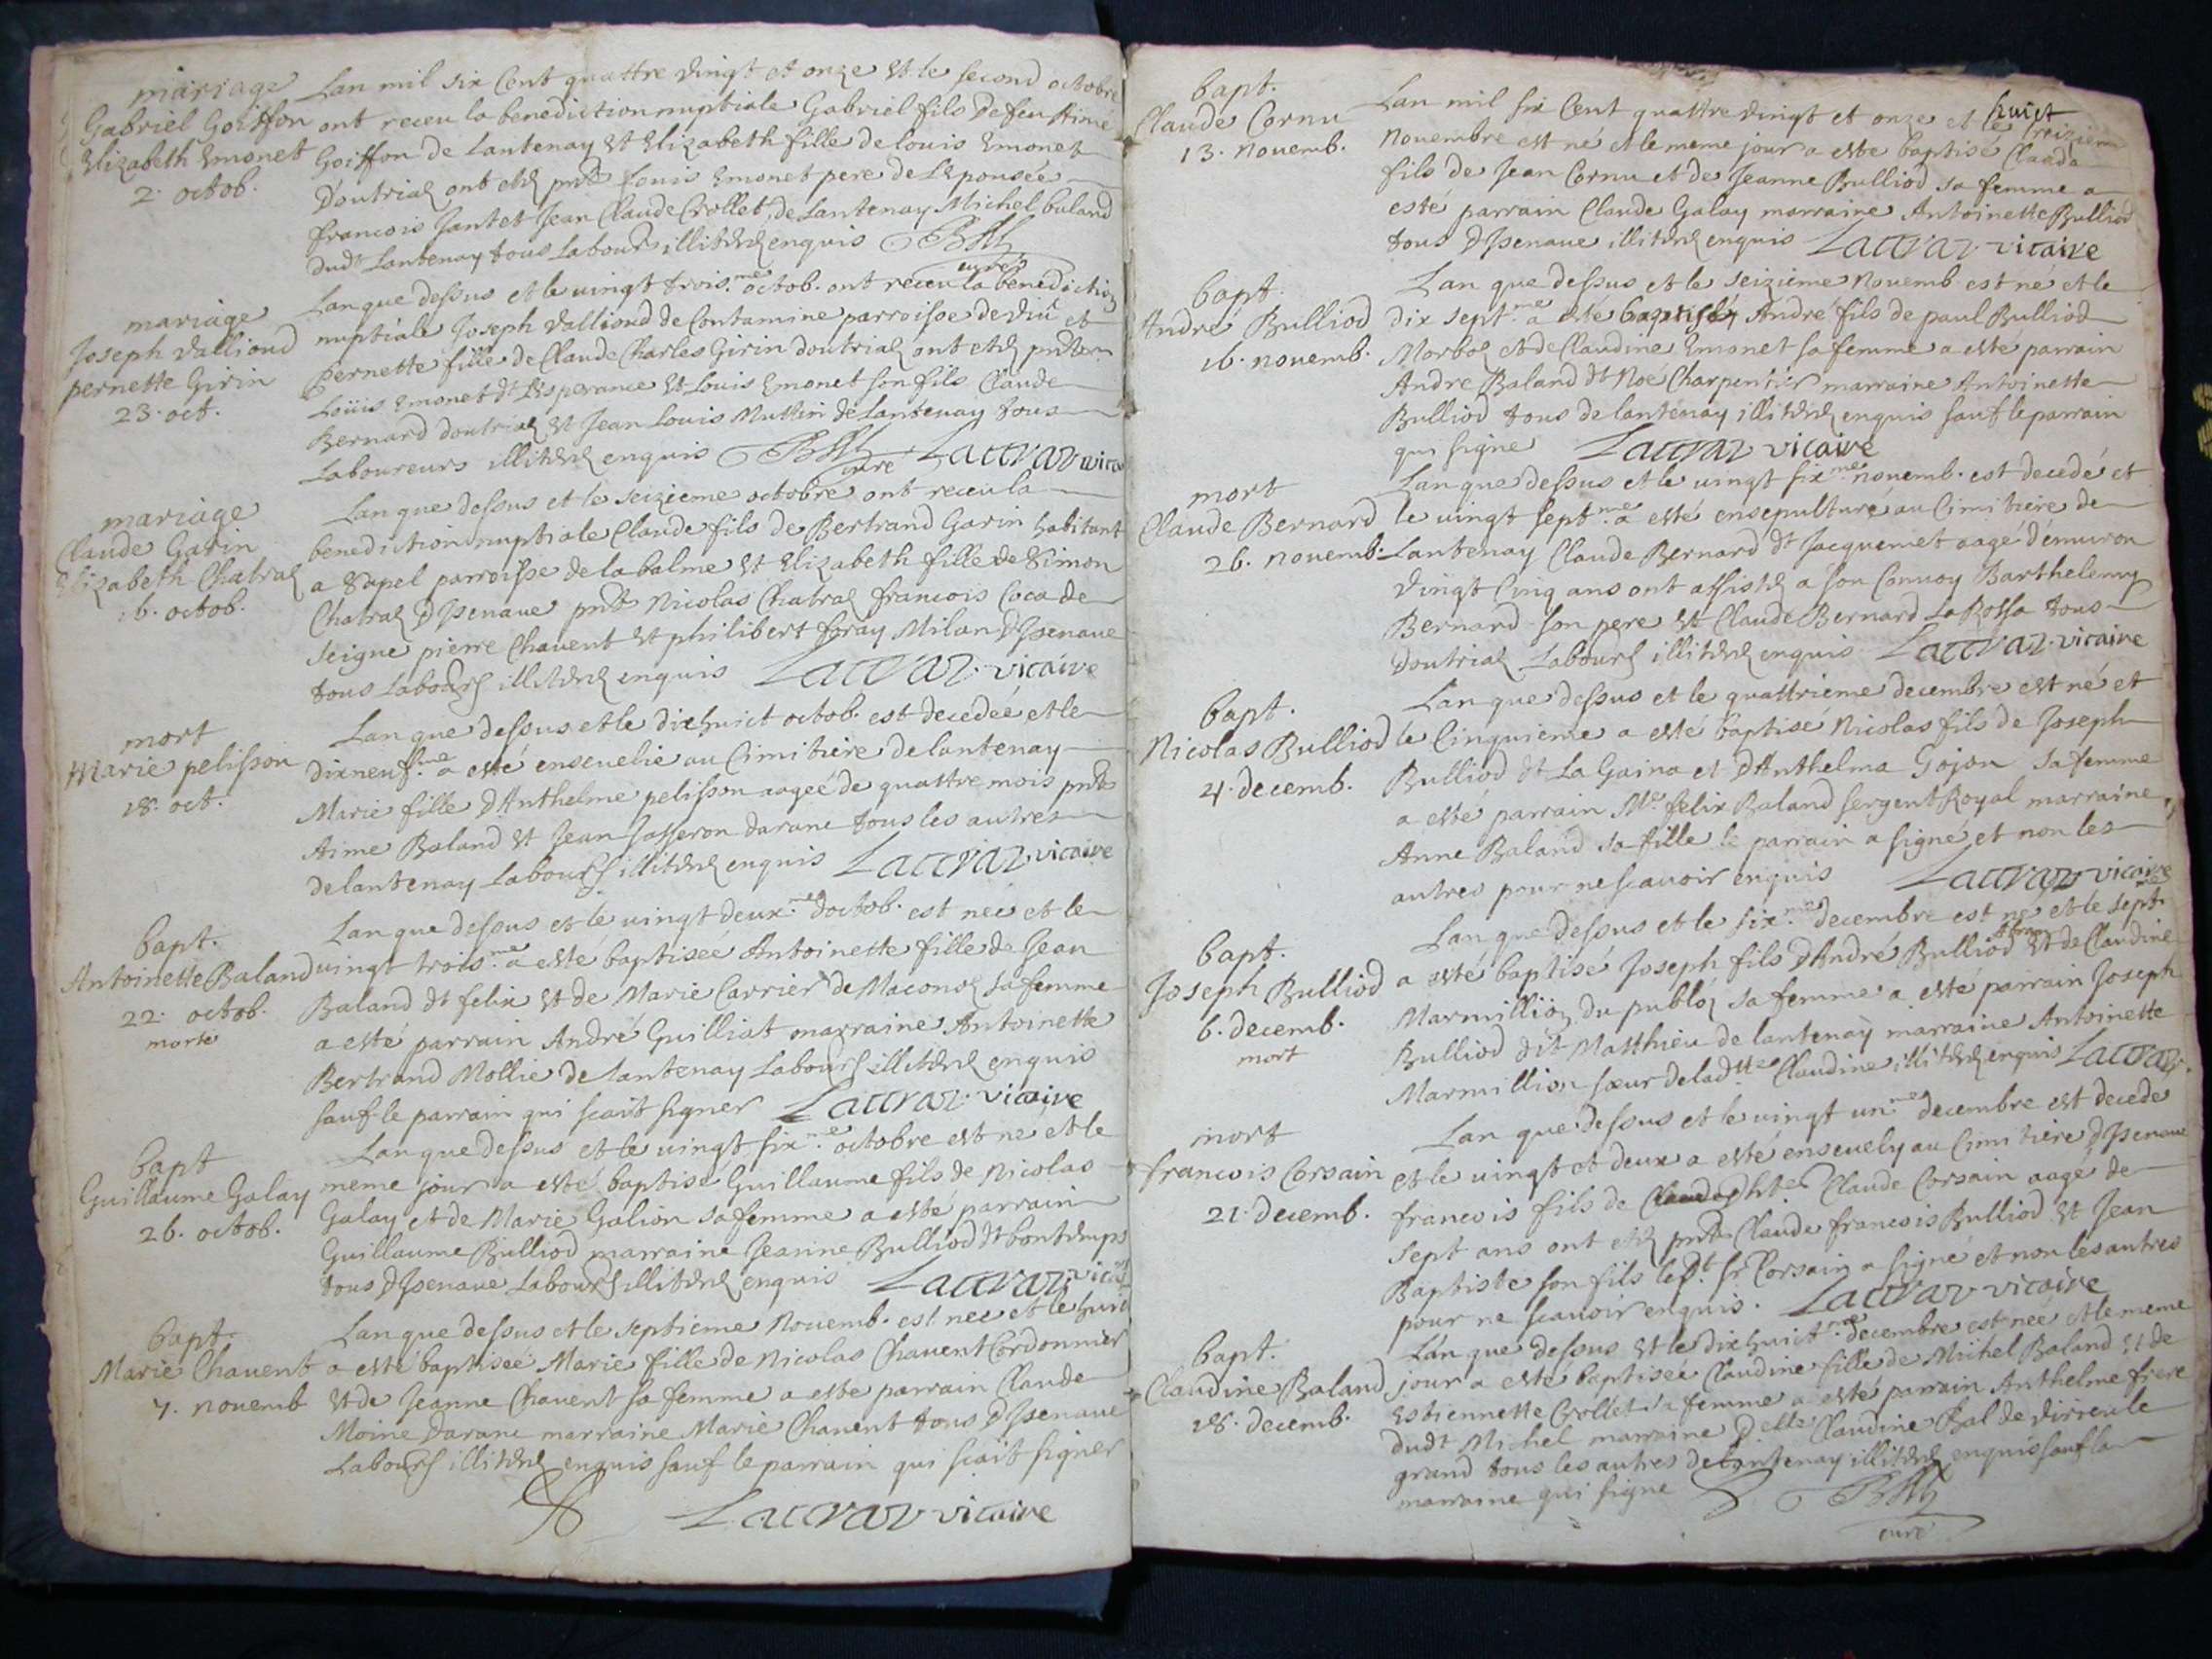 mariage
Gabriel Goiffon
Elizabeth Emonet
2. octob.
Lan mil six Cent quattre vingt et onze et le second octobre
ont receu la benediction nuptiale Gabriel fils de feu Aimé
Goiffon de Lantenay et Elizabeth fille de louis Emonet
Doutriaz ont etez pnts Louis Emonet pere de lepousée
francois Jantet Jean Claude Crollet de Lantenay Michel baland
dudt Lantenay tous Labours illiterez enquis
curé
mariage
Joseph Valliond
pernette Girin
23. oct.
Lan que dessus et le vingt trois.me octob. ont receu la benediction
nuptiale Joseph Valliond de Contamine parroisse de et
pernette fille de Claude Charles Girin doutriaz ont etez pnts
Loüis Emonet dt Lesperance et Louis Emonet son fils Claude
Bernard doutriaz et Jean Louis Muttin de Lantenay tous
Laboureurs illiterez enquis curé Lacraz vica
mariage
Claude Garin
Elizabeth Chatraz
16. octob.
Lan que dessus et le seizieme octobre ont receu la
benediction nuptiale Claude fils de Bertrand Garin habitant
a Sapel parroisse de la balme et Elizabeth fille de Simon
Chatraz Disenave pnts Nicolas Chatraz francois Coca de
seigne pierre Chavent et philibert foray Milan Disenave
tous Labours illiterez enquis Lacraz. vicaire
mort
Marie pelisson
18. oct.
Lan que dessus et le dixhuict octob. est decedée et le
dixneuf.me a esté ensevelie au Cimitiere de lantenay
Marie fille D'Anthelme pelisson aageé de quattre mois pnts
Aime Baland et Jean Josseron darane tous les autres
de lantenay Labours illiterez enquis Lacraz vicaire
bapt.
Antoinette Baland
22. octob.
morte
Lan que dessus et le vingt deux.me doctob. est neé et le
vingt trois.me a esté baptiseé Antoinette fille de Jean
Baland dt felix et de Marie Carrier de Maconoz sa femme
a esté parrain André Guilliat marraine Antoinette
Bertrand Mollie de lantenay Labours illiterez enquis
sauf le parrain qui scait signer Lacraz. vicaire
bapt
Guillaume Galay
26. octob.
Lan que dessus et le vingt six.me octobre est né et le
meme jour a esté baptisé Guillaume fils de Nicolas
Galay et de Marie Galion sa femme a esté parrain
Guillaume Bulliod marraine Jeanne Bulliod dt bontemps
tous Disenave Labours illiterez enquis Lacraz vic
bapt.
Marie Chavent
7. novemb
Lan que dessus et le septieme Novemb. est neé et le huict
a esté baptiseé Marie fille de Nicolas Chavent Cordonnier
et de Jeanne Chavent sa femme a esté parrain Claude
Moine Darane marraine Marie Chavent tous Disenave
Labours illiterez enquis sauf le parrain qui scait signer
Lacraz vicaire
bapt.
Claude Cornu
13. Novemb.
Lan mil six Cent quattre vingt et onze et le huict treizieme
Novembre est né et le meme jour a esté baptisé Claude
fils de Jean Cornu et de Jeanne Bulliod sa femme a
esté parrain Claude Galay marraine Antoinette Bulliod
tous Disenave illiterez enquis Lacraz. vicaire
bapt.
André Bulliod
16. novemb.
Lan que dessus et le seizieme Novemb est né et le
dix sept.me a esté baptisé André fils de paul Bulliod
Morboz et de Claudine Emonet sa femme a esté parrain
Andre Baland dt Noé Charpentier marraine Antoinette
Bulliod tous de lantenay illiterez enquis sauf le parrain
qui signe Lacraz vicaire
mort
Claude Bernard
26. novemb.
Lan que dessus et le vingt six.me novemb. est decedé et
le vingt sept.me a esté ensepulturé au Cimitiere de
Lantenay Claude Bernard dt Jacquemet aagé d'environ
vingt Cinq ans ont assistez a son Convoy Barthelemy
Bernard son pere et Claude Bernard La Rossa tous
doutriaz Labours illiterez enquis Lacraz. vicaire
bapt.
Nicolas Bulliod
4. decemb.
Lan que dessus et le quattrieme decembre est né et
le Cinquieme a esté baptisé Nicolas fils de Joseph
Bulliod dt La Gaina et D'Anthelma Gojon sa femme
a esté parrain Me. felix Baland sergent Royal marraine
Anne Baland sa fille le parrain a signé et non les
autres pour ne scavoir enquis Lacraz vicaire
bapt.
Joseph Bulliod
6. decemb.
mort
Lan que dessus et le six.me decembre est né et le sept.me
a esté baptisé Joseph fils D'André Bulliod et de Claudine
Marmillion du publoz sa femme a esté parrain Joseph
Bulliod dit Matthieu de lantenay marraine Antoinette
Marmillion sœur de ladtte Claudine illiterez enquis Lacraz.
mort
francois Corsain
21. decemb.
Lan que dessus et le vingt un.me decembre est decedé
et le vingt et deux a esté ensevely au Cimitiere Disenave
francois fils de Claude Corsain aagé de
sept ans ont etez pnts Claude francois Bulliod et Jean
Baptiste son fils ledt. sr. Corsain a signé et non les autres
pour ne scavoir enquis. Lacraz vicaire
bapt.
Claudine Baland
18. decemb.
Lan que dessus et le dixhuict.me decembre est neé et le meme
jour a esté baptiseé Claudine fille de Michel Baland et de
Estiennette Crollet sa femme a esté parrain Anthelme frere
dudt Michel marraine Delle Claudine Bal de virieu le
grand tous les autres de lantenay illiterez enquis sauf la
marraine qui signe
curé